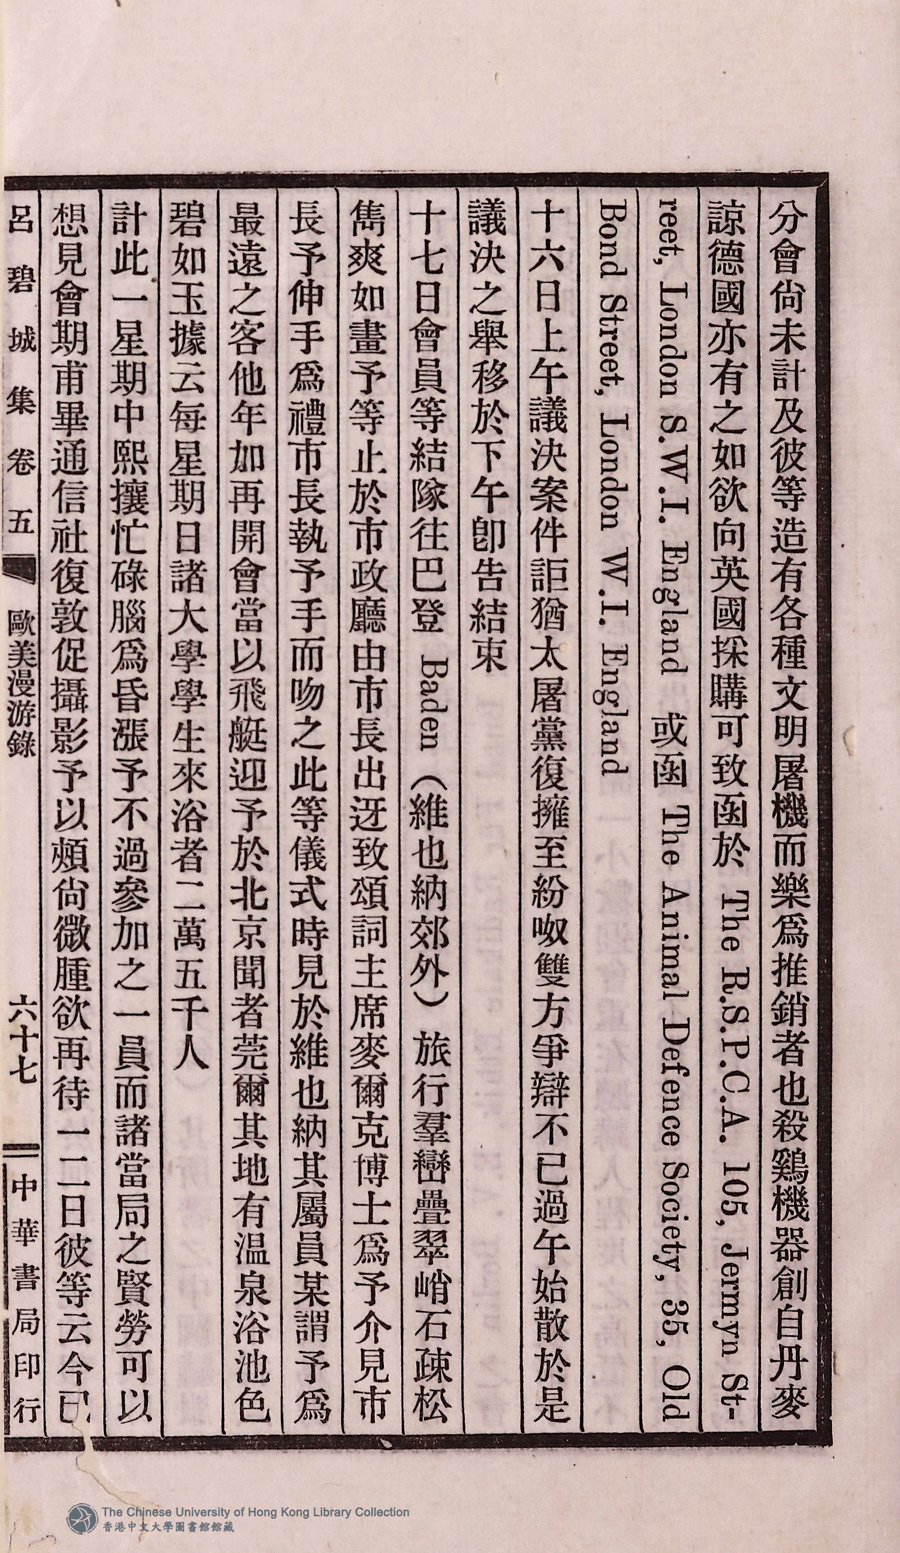 分會尙未計及彼等造有各種文明屠機而樂爲推銷者也殺鷄機器創自丹麥
諒德國亦有之如欲向英國採購可致函於 The R.S.P.C.A. 105, Jermyn St-
reet, London S.W.I. England 或函 The Animal Defence Society, 35, Old
Bond Street, London W.I. England
十六日上午議決案件詎猶太屠黨復擁至紛呶雙方爭辯不已過午始散於是
議決之舉移於下午卽告結束
十七日會員等結隊往巴登 Baden（維也納郊外）旅行羣巒疊翠峭石疎松
雋爽如畫予等止於市政廳由市長出迓致頌詞主席麥爾克博士爲予介見市
長予伸手爲禮市長執予手而吻之此等儀式時見於維也納其屬員某謂予爲
最遠之客他年如再開會當以飛艇迎予於北京聞者莞爾其地有溫泉浴池色
碧如玉據云每星期日諸大學學生來浴者二萬五千人
計此一星期中熙攘忙碌腦爲昏漲予不過參加之一員而諸當局之賢勞可以
想見會期甫畢通信社復敦促攝影予以頰尙微腫欲再待一二日彼等云今已
呂碧城集卷五 歐美漫游錄 六十七 中華書局印行
The Chinese University of Hong Kong Library Collection
香港中文大學圖書館館藏